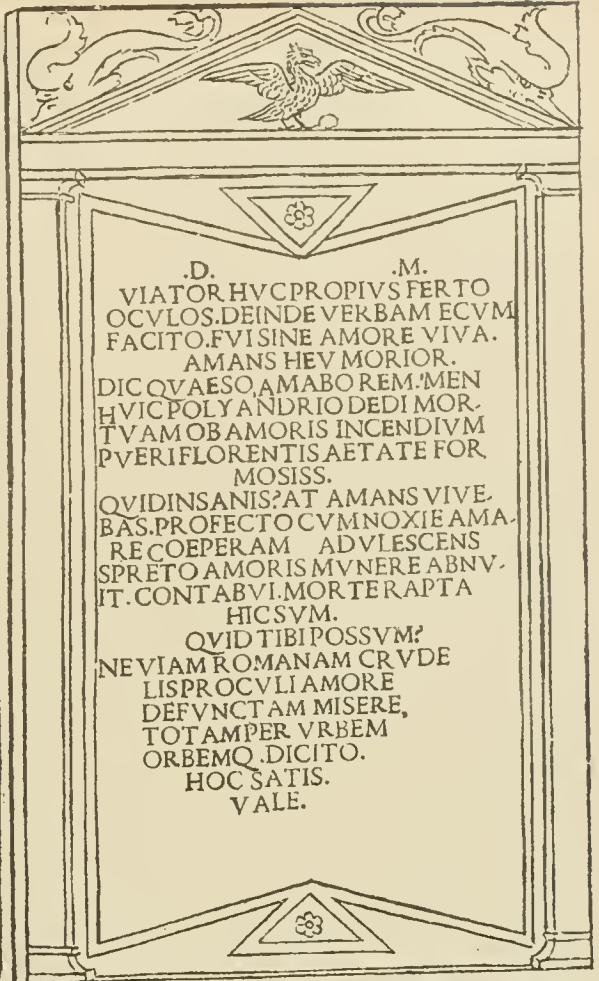 .D. .M.
VIATOR HVC PROPIVS FERTO
OCVLOS.DEINDE VERBAM ECVM
FACITO.FVI SINE AMORE VIVA.
AMANS HEV MORIOR.
DIC QVAESO,AMABO REM.'MEN
HVIC POLYANDRIO DEDI MOR-
TVAM OB AMORIS INCENDIVM
PVERI FLORENTIS AETATE FOR
MOSISS.
QVID INSANIS?AT AMANS VIVE-
BAS.PROFECTO CVM NOXIE AMA-
RE COEPERAM ADVLESCENS
SPRETO AMORIS MVNERE ABNV-
IT.CONTABVI.MORTE RAPTA
HIC SVM.
QVID TIBI POSSVM?
NEVIAM ROMANAM CRVDE
LIS PROCVLI AMORE
DEFVNCTAM MISERE,
TOTAM PER VRBEM
ORBEMQ.DICITO.
HOC SATIS.
VALE.